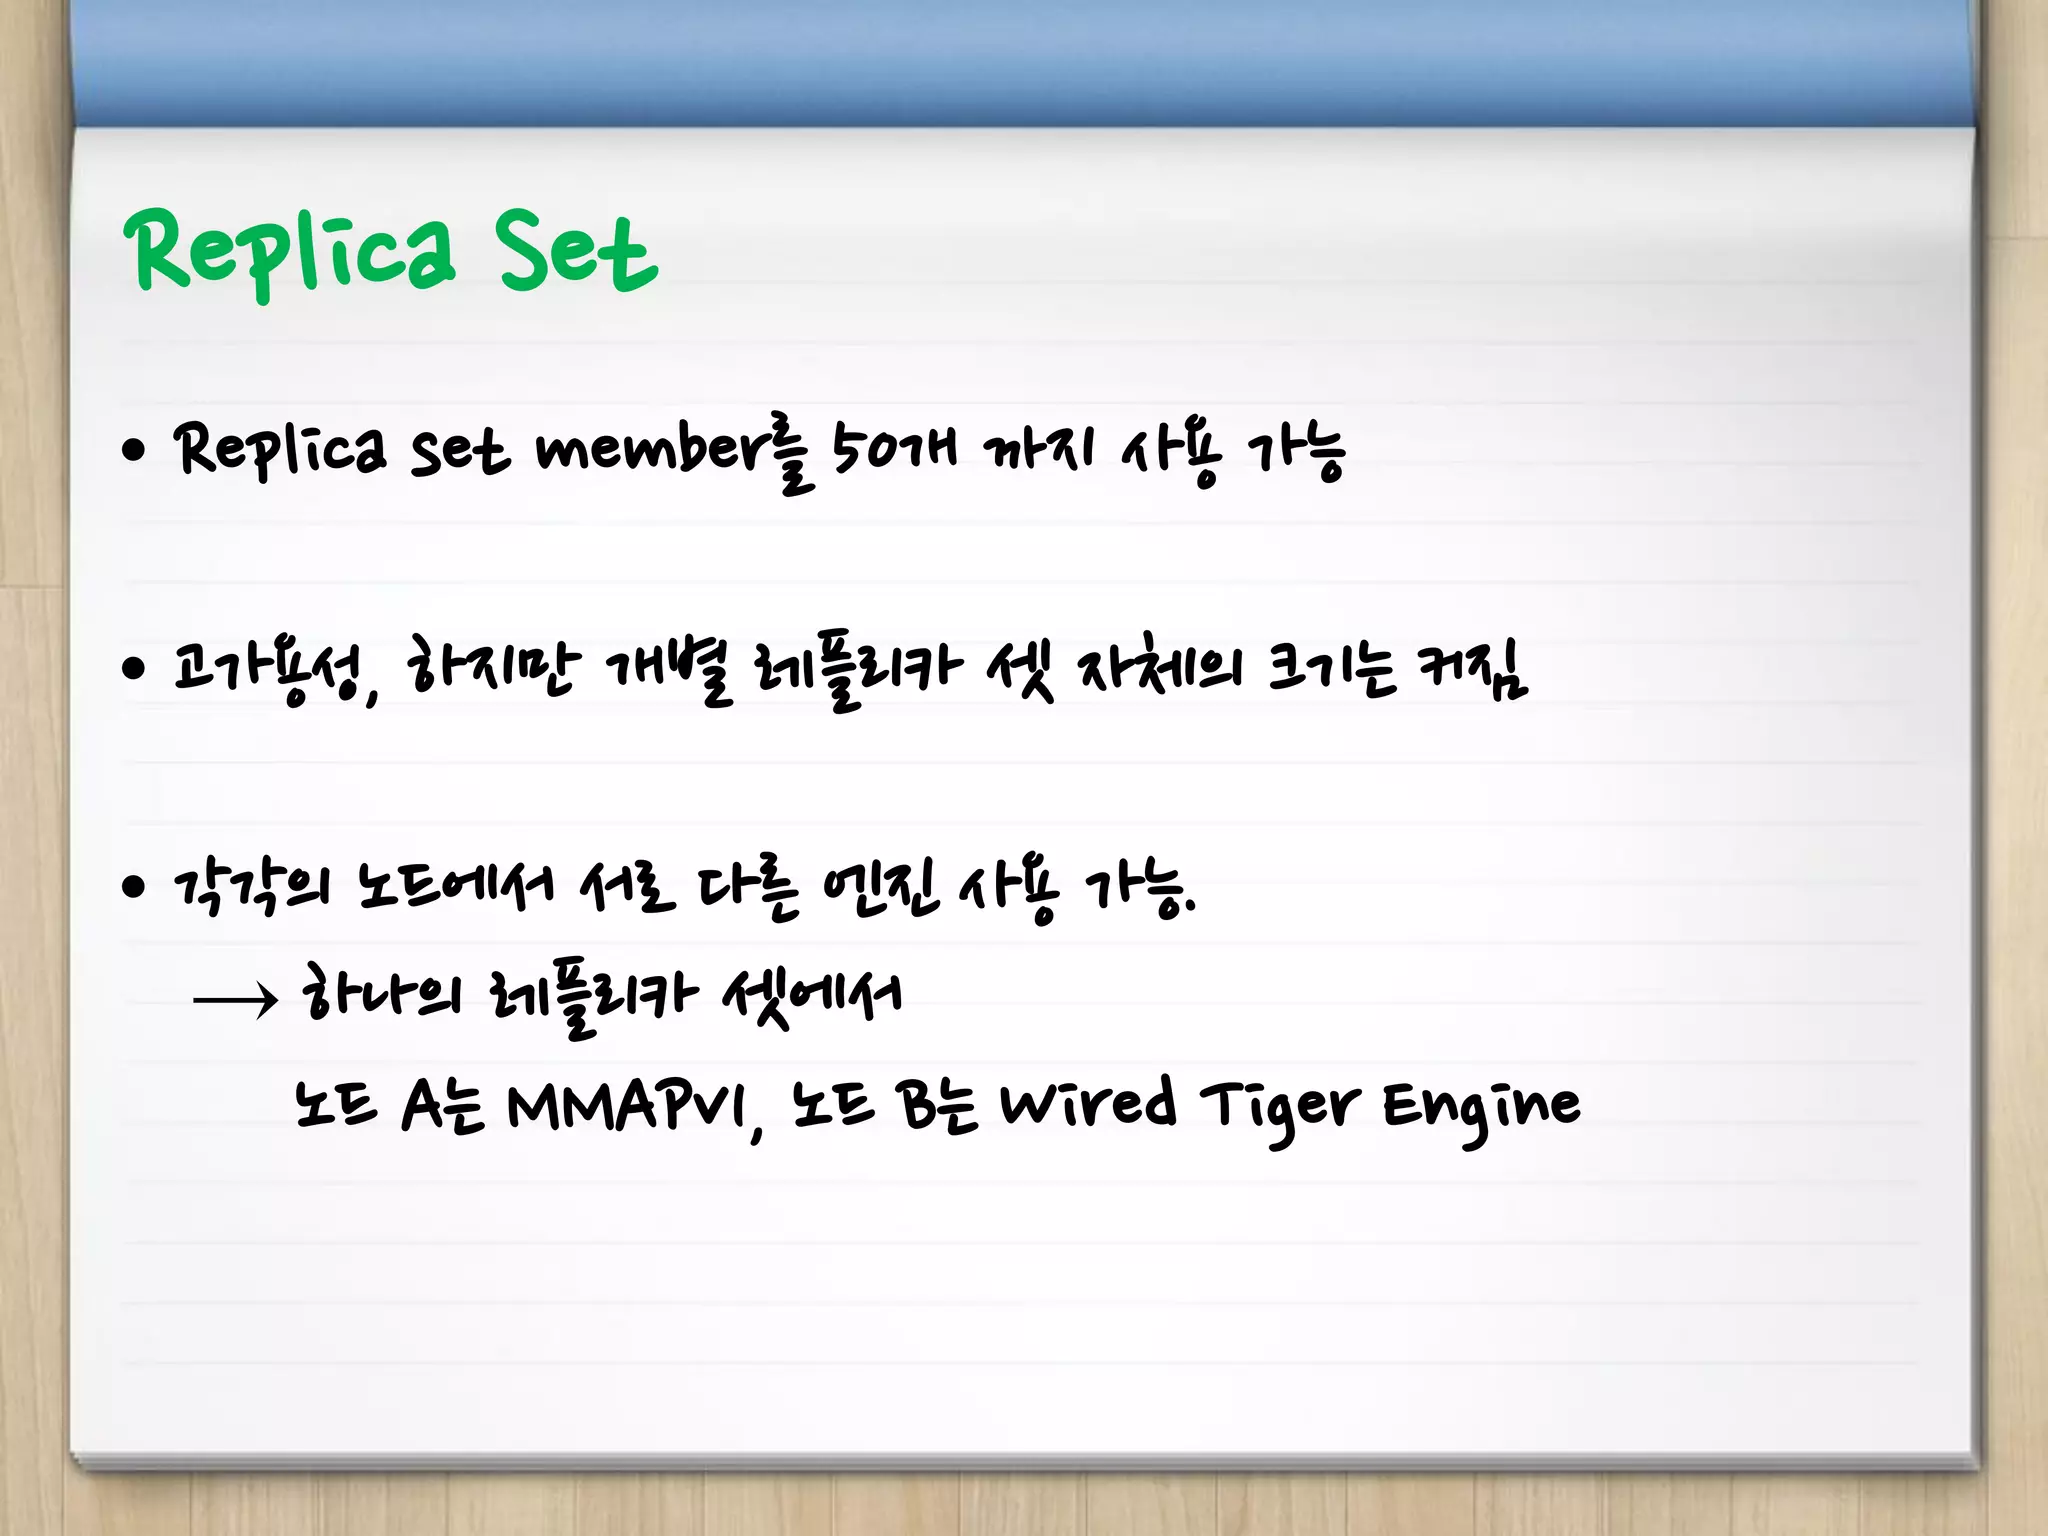 Replica Set
• Replica set member를 50개 까지 사용 가능
• 고가용성, 하지만 개별 레플리카 셋 자체의 크기는 커짐
• 각각의 노드에서 서로 다른 엔진 사용 가능.
→ 하나의 레플리카 셋에서
노드 A는 MMAPv1, 노드 B는 Wired Tiger Engine